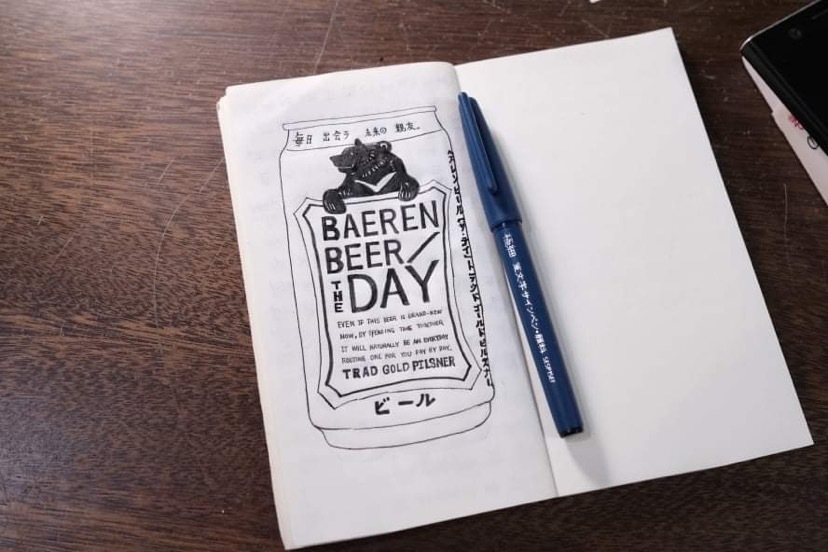 毎日 出会う 未来の 親友。
BAEREN
BEER/
THE DAY
EVEN IF THIS BEER IS BRAND-NEW
NOW, BY SPENDING TIME TOGETHER,
IT WILL NATURALLY BE AN EVERYDAY
ROUTINE ONE FOR YOU DAY BY DAY.
TRAD GOLD PILSNER
ビール
ベアレンビール ザ・デイ トラッドゴールドピルスナー
極細 筆文字サインペン・顔料